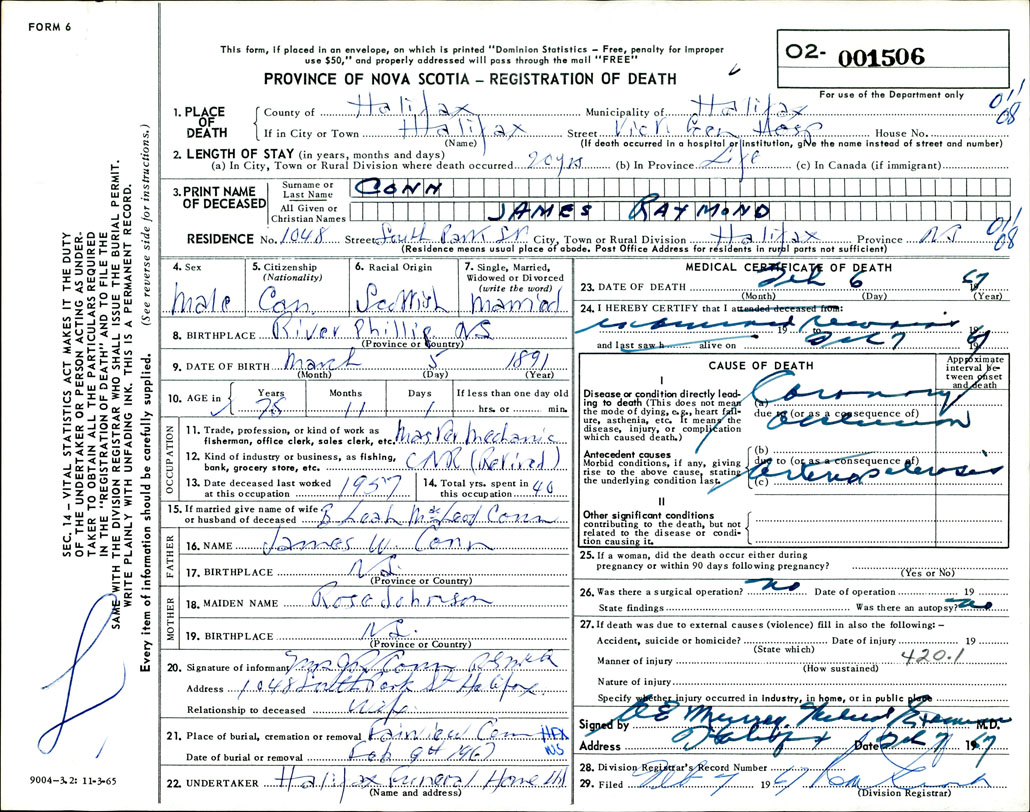 FORM 6
This form, if placed in an envelope, on which is printed "Dominion Statistics - Free, penalty for improper
use $50," and properly addressed will pass through the mail "FREE"
PROVINCE OF NOVA SCOTIA - REGISTRATION OF DEATH
02- 001506
For use of the Department only
01/08
1. PLACE OF DEATH
County of Halifax Municipality of Halifax
If in City or Town Halifax Street Vict Gen Hosp House No.
(Name) (If death occurred in a hospital or institution, give the name instead of street and number)
2. LENGTH OF STAY (in years, months and days)
(a) In City, Town or Rural Division where death occurred 20 yrs (b) In Province Life (c) In Canada (if immigrant)
3. PRINT NAME OF DECEASED
Surname or Last Name CONN
All Given or Christian Names JAMES RAYMOND
RESIDENCE No. 1048 Street South Park St City, Town or Rural Division Halifax Province NS
01/08
(Residence means usual place of abode. Post Office Address for residents in rural parts not sufficient)
4. Sex
Male
5. Citizenship (Nationality)
Can.
6. Racial Origin
Scottish
7. Single, Married, Widowed or Divorced (write the word)
Married
8. BIRTHPLACE River Phillip NS
(Province or Country)
9. DATE OF BIRTH March 5 1891
(Month) (Day) (Year)
10. AGE in Years Months Days If less than one day old
75 11 1 hrs. or min.
OCCUPATION
11. Trade, profession, or kind of work as fisherman, office clerk, sales clerk, etc. Master Mechanic
12. Kind of industry or business, as fishing, bank, grocery store, etc. CNR (Retired)
13. Date deceased last worked at this occupation 1957
14. Total yrs. spent in this occupation 40
15. If married give name of wife or husband of deceased B Leah McLeod Conn
FATHER
16. NAME James W. Conn
17. BIRTHPLACE NS.
(Province or Country)
MOTHER
18. MAIDEN NAME Rose Johnson
19. BIRTHPLACE NS.
(Province or Country)
20. Signature of informant Mrs Conn
Address 1048 South Park St Halifax
Relationship to deceased wife
21. Place of burial, cremation or removal Fairview Cem HFX NS
Date of burial or removal Feb 9th 1967
22. UNDERTAKER Halifax Funeral Home
(Name and address)
MEDICAL CERTIFICATE OF DEATH
23. DATE OF DEATH Feb 6 1967
(Month) (Day) (Year)
24. I HEREBY CERTIFY that I attended deceased from:
examined remains 19 to 19
and last saw h alive on Feb 7 1967
CAUSE OF DEATH
Approximate interval between onset and death
I
Disease or condition directly leading to death (This does not mean the mode of dying, e.g., heart failure, asthenia, etc. It means the disease, injury, or complication which caused death.)
(a) Coronary
due to (or as a consequence of)
occlusion
Antecedent causes
Morbid conditions, if any, giving rise to the above cause, stating the underlying condition last.
(b)
due to (or as a consequence of)
(c) Arteriosclerosis
II
Other significant conditions
contributing to the death, but not related to the disease or condition causing it.
25. If a woman, did the death occur either during pregnancy or within 90 days following pregnancy?
(Yes or No)
26. Was there a surgical operation? no Date of operation 19
State findings Was there an autopsy? no
27. If death was due to external causes (violence) fill in also the following: -
Accident, suicide or homicide? Date of injury 19
(State which)
Manner of injury 420.1
(How sustained)
Nature of injury
Specify whether injury occurred in industry, in home, or in public place
Signed by Murray, Medical Examiner M.D.
Address Halifax Date Feb 7 1967
28. Division Registrar's Record Number
29. Filed Feb 7 1967
(Division Registrar)
SEC. 14 - VITAL STATISTICS ACT MAKES IT THE DUTY
OF THE UNDERTAKER OR PERSON ACTING AS UNDER-
TAKER TO OBTAIN ALL THE PARTICULARS REQUIRED
IN THE "REGISTRATION OF DEATH" AND TO FILE THE
SAME WITH THE DIVISION REGISTRAR WHO SHALL ISSUE THE BURIAL PERMIT.
WRITE PLAINLY WITH UNFADING INK. THIS IS A PERMANENT RECORD.
Every item of information should be carefully supplied. (See reverse side for instructions.)
9004-3.2: 11-3-65